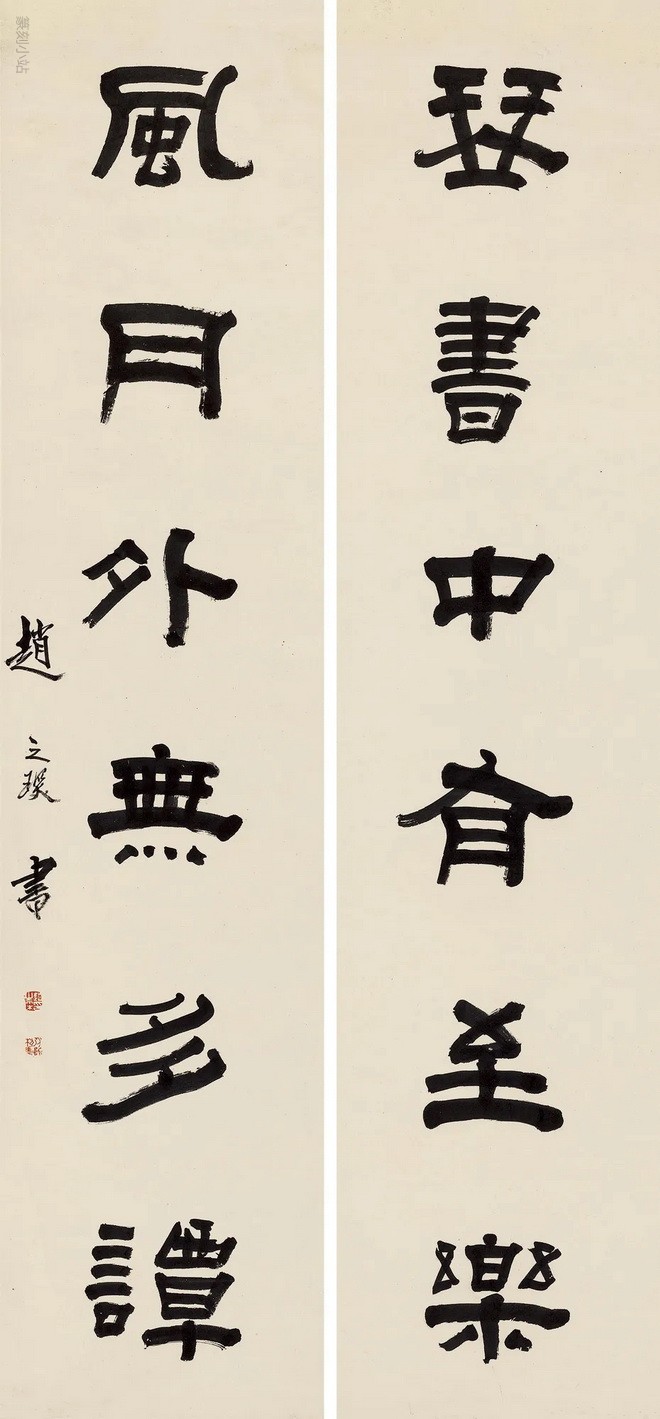 琹書中有至樂
風月外無多譚
趙之琛書
篆刻小站